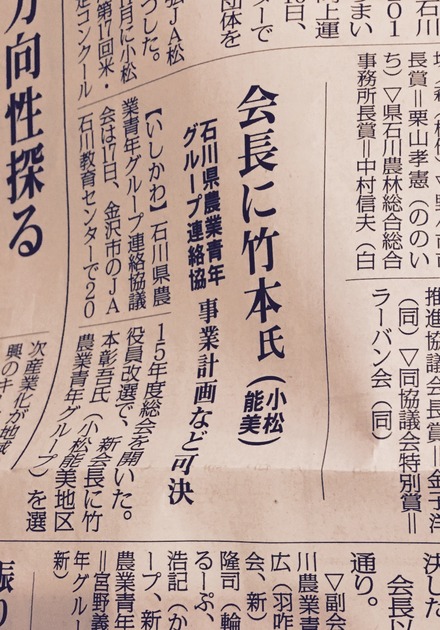 石川
201
まい
向上運
10日、
ターで
団体を
長賞＝栗山孝憲（ののい
ち）▽県石川農林総合総合
事務所長賞＝中村信夫（白
推進協議会長賞＝金子洋
（同）▽同協議会特別賞＝
ラーバン会（同）
会長に竹本氏（小松能美）
石川県農業青年
グループ連絡協
事業計画など可決
【いしかわ】石川県農
業青年グループ連絡協議
会は17日、金沢市のJA
石川教育センターで20
15年度総会を開いた。
役員改選で、新会長に竹
本彰吾氏（小松能美地区
農業青年グループ）を選
決した
会長以
通り。
▽副会
川農業青
広（羽咋
会、新）
隆司（輪
るーぷ、
浩記（か
ープ、新
農業青年
＝宮野義
年グルー
新）
JA松
つした。
月に小松
第17回米・
定コンクール
方向性探る
次産業化が地域
興のキ
振り